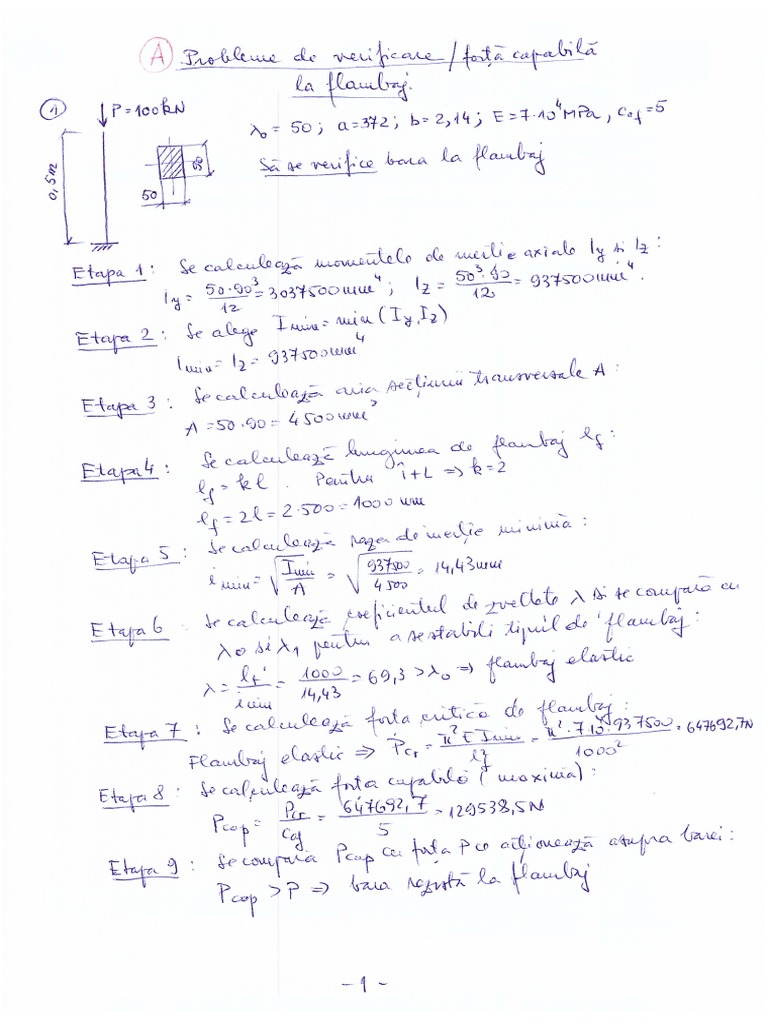 A Probleme de verificare / forță capabilă
la flambaj.
1
P=100kN
λ₀ = 50 ; a=372 ; b=2,14 ; E=7·10⁴MPa, c_ef=5
Să se verifice bara la flambaj
0,5m
90
50
Etapa 1 : Se calculează momentele de inerție axiale Iy si Iz :
Iy = 50·90³/12 = 3037500mm⁴ ; Iz = 50³·90/12 = 937500mm⁴.
Etapa 2 : Se alege Imin = min (Iy, Iz)
Imin = Iz = 937500mm⁴
Etapa 3 : Se calculează aria secțiunii transversale A :
A = 50·90 = 4500mm²
Etapa 4 : Se calculează lungimea de flambaj lf :
lf = kl . Pentru î+L ⇒ k=2
lf = 2l = 2·500 = 1000 mm
Etapa 5 : Se calculează raza de inerție minimă :
imin = √(Imin/A) = √(937500/4500) = 14,43mm
Etapa 6 : Se calculează coeficientul de zveltete λ si se compară cu
λ0 si λ1 pentru a se stabili tipul de flambaj :
λ = lf/imin = 1000/14,43 = 69,3 > λ₀ ⇒ flambaj elastic
Etapa 7 : Se calculează forta critică de flambaj :
Flambaj elastic ⇒ Pcr = π² E Imin/lf² = π²·7·10⁴·937500/1000² = 647692,7N
Etapa 8 : Se calculează forta capabilă (maximă) :
Pcap = Pcr/caf = 647692,7/5 = 129538,5N
Etapa 9 : Se compară Pcap cu forta P ce acționează asupra barei :
Pcap > P ⇒ bara rezistă la flambaj
- 1 -